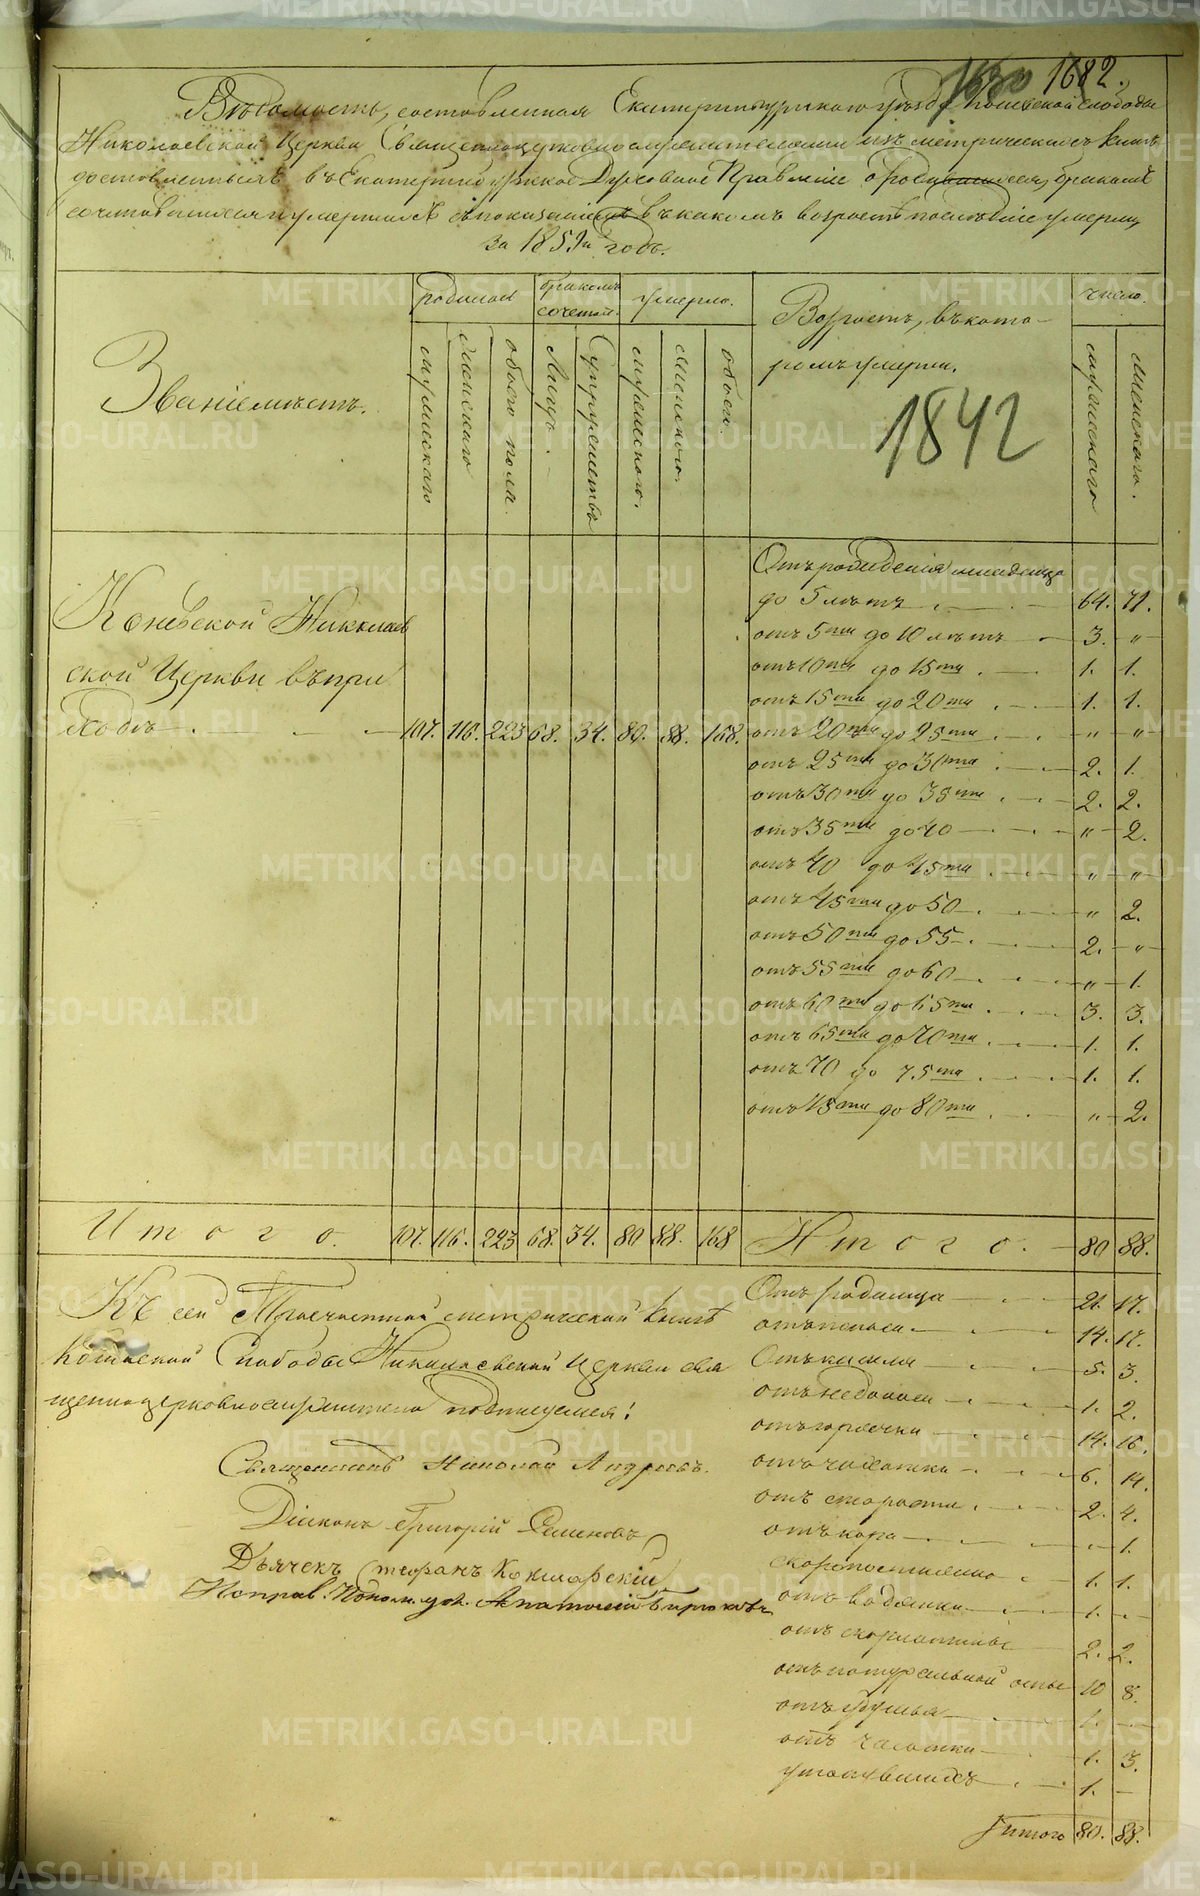 1682.
Вѣдомость, составленная Екатеринбургскаго уѣзда Коневской слободы
Николаевской Церкви Священноцерковнослужителями изъ метрическихъ книгъ
доставленныхъ въ Екатеринбургское Духовное Правленіе о родившихся, бракомъ
сочетавшихся и умершихъ съ показаніемъ въ какомъ возрастѣ послѣдніе умерли,
за 1859й годъ.
Званіе мѣстъ.
родилось
бракомъ сочетал.
умерло.
Возрастъ, въ кото-
ромъ умерли.
число.
мужескаго
женскаго
обоего пола.
Лицъ.
Супружествъ
мужескаго.
женскаго.
обоего.
мужескаго
женскаго.
1842
Коневской Николаев
ской Церкви въ при
ходѣ 107. 116. 223 68. 34. 80. 88. 168.
Отъ рожденія младенца
до 5 лѣтъ 64. 71.
отъ 5ти до 10 лѣтъ 3. "
отъ 10ти до 15ти 1. 1.
отъ 15ти до 20ти 1. 1.
отъ 20ти до 25ти " "
отъ 25ти до 30ти 2. 1.
отъ 30ти до 35ти 2. 2.
отъ 35ти до 40 " 2.
отъ 40 до 45ти " "
отъ 45ти до 50 " 2.
отъ 50ти до 55 2. "
отъ 55ти до 60 " 1.
отъ 60ти до 65ти 3. 3.
отъ 65ти до 70ти 1. 1.
отъ 70 до 75ти 1. 1.
отъ 75ти до 80ти " 2.
Итого. 107. 116. 223 68. 34. 80 88. 168 Итого. 80 88.
Къ сей Троечастной метрической книгѣ
Коневской Слободы Николаевской Церкви свя
щенноцерковнослужители подписуемся:
Священникъ Николай Андреевъ.
Діаконъ Григорій Семеновъ
Дьячекъ Стефанъ Кокшарскій
Исправ. Поном. дол. Анатолій Бирюковъ
Отъ родимца 21. 17.
отъ поноса 14. 17.
Отъ кашля 5. 3.
отъ 1. 2.
отъ горячки 14. 16.
отъ чахотки 6. 14.
отъ старости 2. 4.
отъ кори 1.
скоропостижно 1. 1.
отъ водянки 1.
отъ скорлатины 2. 2.
отъ натуральной оспы 10 8.
отъ удушья 1.
отъ 1. 3.
утопившихъ 1. -
Итого 80. 88.
METRIKI.GASO-URAL.RU